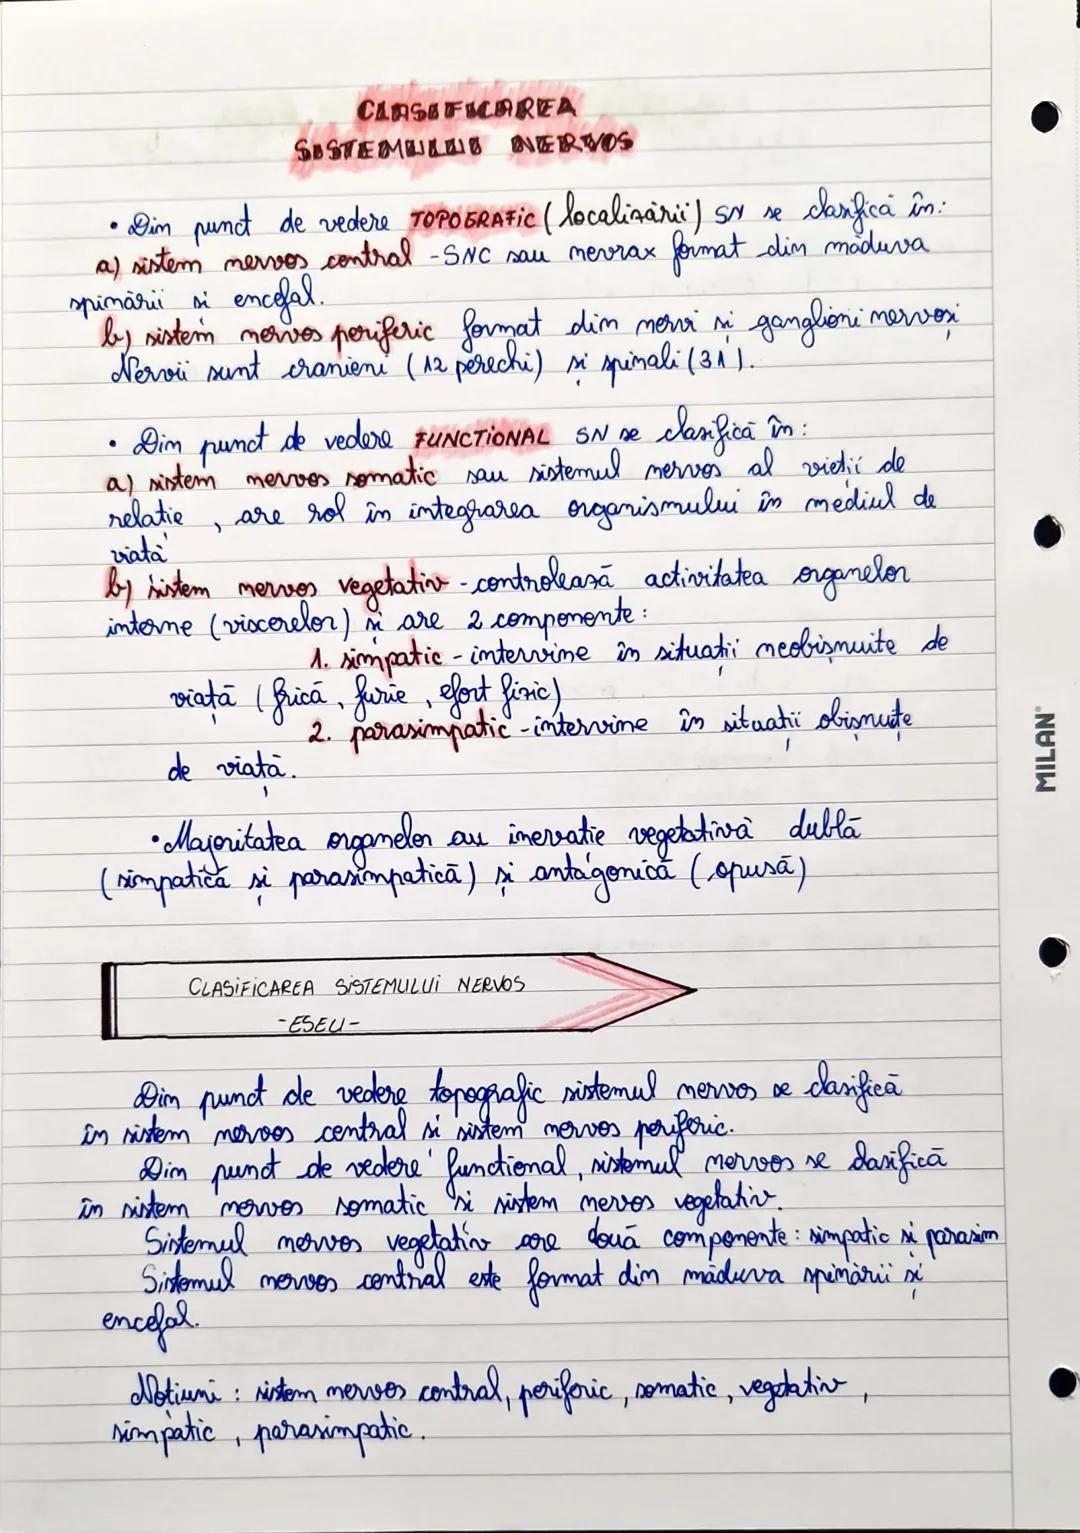 CLASIFICAREA
SISTEMULUI NERVOS
• Din punct de vedere TOPOGRAFIC (localizării) SN se clasifică în:
a) sistem nervos central - SNC sau nevrax format din măduva
spinării si encefal.
b) sistem nervos periferic format din nervi și ganglioni nervosi
Nervii sunt cranieni (12 perechi) și spinali (31).
• Din punct de vedere FUNCTIONAL SN se clasifică în:
a) sistem nervos somatic sau sistemul nervos al vietii de
relație, are rol în integrarea organismului în mediul de
viată
b) sistem nervos vegetativ - controlează activitatea organelor
interne (viscerelor) și are 2 componente:
1. simpatic - intervine în situații neobișnuite de
viață (frică, furie, efort fizic)
2. parasimpatic - intervine în situații obișnuite
de viață.
• Majoritatea organelor au inervatie vegetativă dublă
(simpatică și parasimpatică) și antagonică (opusă)
CLASIFICAREA SISTEMULUI NERVOS
- ESEU -
Din punct de vedere topografic sistemul nervos se clasifică
în sistem nervos central și sistem nervos periferic.
Din punct de vedere functional, sistemul nervos se clasifică
în sistem nervos somatic și sistem nervos vegetativ.
Sistemul nervos vegetativ are două componente: simpatic și parasim
Sistemul nervos central este format din măduva spinării și
encefal.
Noțiuni: sistem nervos central, periferic, somatic, vegetativ,
simpatic, parasimpatic.
MILAN®